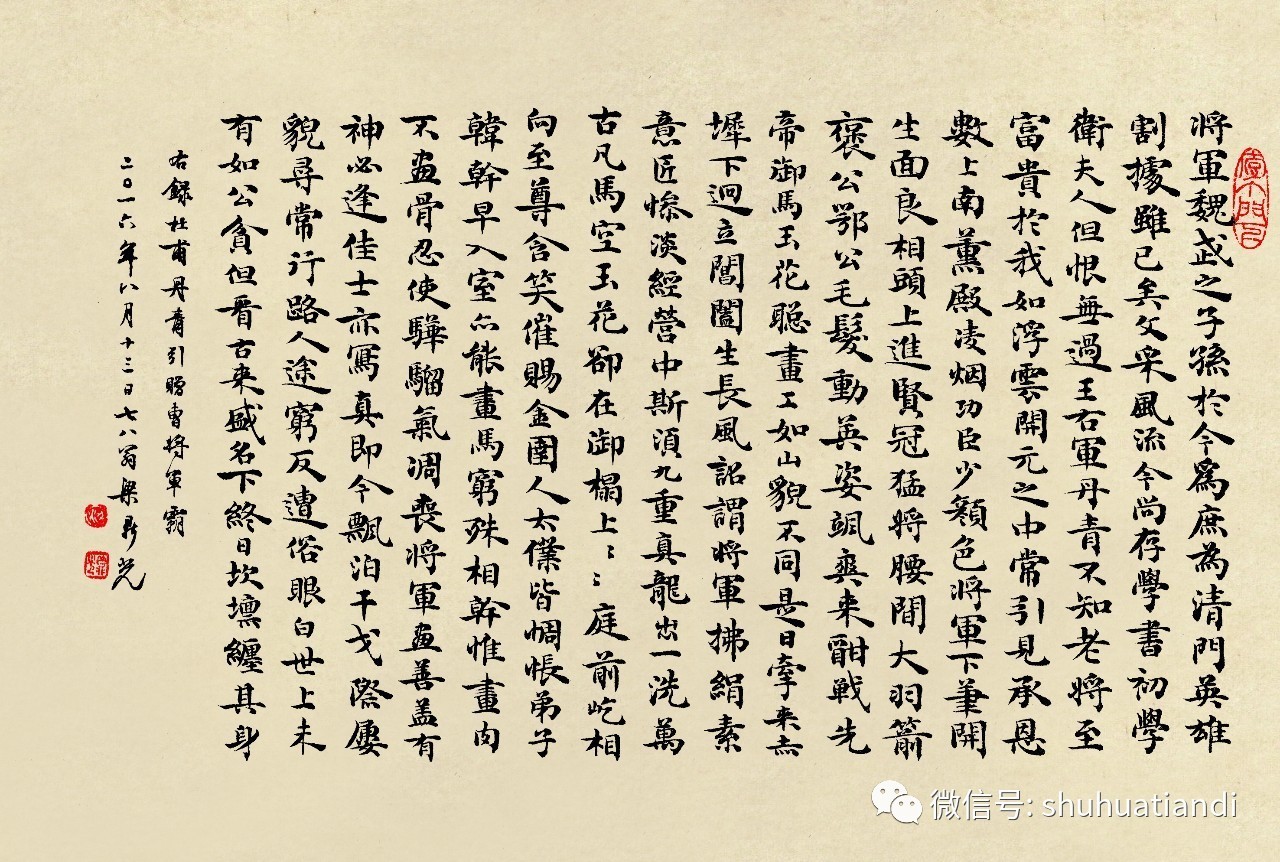 將軍魏武之子孫於今爲庶為清門英雄
割據雖已矣文采風流今尚存學書初學
衛夫人但恨無過王右軍丹青不知老將至
富貴於我如浮雲開元之中常引見承恩
數上南薰殿凌烟功臣少顏色將軍下筆開
生面良相頭上進賢冠猛將腰間大羽箭
褒公鄂公毛髮動英姿颯爽来酣戰先
帝御馬玉花聰畫工如山貌不同是日牽来赤
墀下迥立閶闔生長風詔謂將軍拂絹素
意匠慘淡經營中斯須九重真龍出一洗萬
古凡馬空玉花卻在御榻上〻〻庭前屹相
向至尊含笑催賜金圉人太僕皆惆悵弟子
韓幹早入室亦能畫馬窮殊相幹惟畫肉
不画骨忍使驊騮氣凋喪將軍画善盖有
神必逢佳士亦寫真即今飄泊干戈際屢
貌尋常行路人途窮反遭俗眼白世上未
有如公貧但看古来盛名下終日坎壈纏其身
右錄杜甫丹青引贈曹將軍霸
二〇一六年八月十三日七八翁梁鼎光
微信号: shuhuatiandi